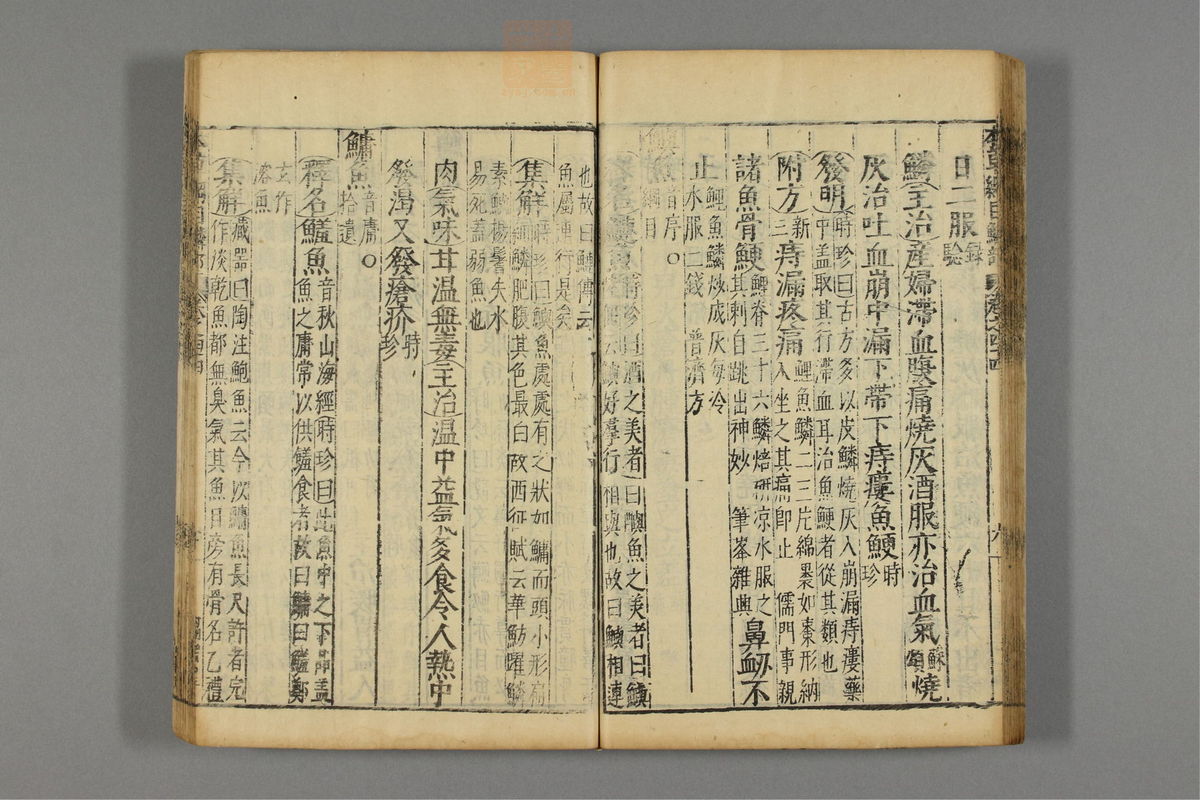 日二服錄驗
鱗主治產婦滯血腹痛燒灰酒服亦治血氣蘇頌燒
灰治吐血崩中漏下帶下痔瘻魚鯁時珍
發明時珍曰古方多以皮鱗燒灰入崩漏痔瘻藥
中蓋取其行滯血耳治魚鯁者從其類也
附方新三痔漏疼痛鯉魚鱗二三片綿裹如棗形納
入坐之其痛卽止 儒門事親
諸魚骨鯁鯉脊三十六鱗焙研涼水服之
其刺自跳出神妙 筆峯雜興鼻衂不
止鯉魚鱗炒成灰每冷
水服二錢 普濟方
音序
綱目○
釋名鰱魚時珍曰酒之美者曰醹魚之美者曰鱮
好羣行相與也故曰鱮相連
也故曰鰱傳云
魚屬連行是矣
集解時珍曰鱮魚處處有之狀如鱅而頭小形扁
細鱗肥腹其色最白故西征賦云華魴躍鱗
素鱮揚鬐失水
易死蓋弱魚也
肉氣味甘溫無毒主治溫中益氣多食令人熱中
發渴又發瘡疥時珍
鱅魚音庸拾遺○
釋名鱃魚音秋山海經時珍曰此魚中之下品蓋
魚之庸常以供饈食者故曰鱅曰鱃鄭
玄作
溶魚
集解藏器曰陶注鮑魚云今以鱅魚長尺許者完
作淡乾魚都無臭氣其魚目旁有骨名乙禮